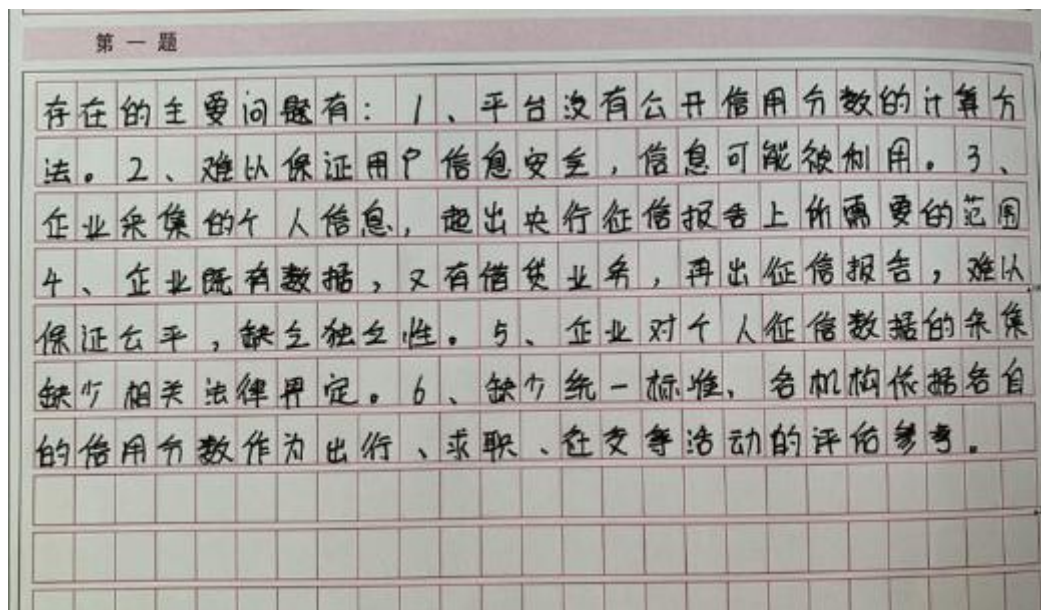 第一题
存在的主要问题有：1、平台没有公开信用分数的计算方
法。2、难以保证用户信息安全，信息可能被利用。3、
企业采集的个人信息，超出央行征信报告上所需要的范围
4、企业既有数据，又有借贷业务，再出征信报告，难以
保证公平，缺乏独立性。5、企业对个人征信数据的采集
缺少相关法律界定。6、缺少统一标准，各机构依据各自
的信用分数作为出行、求职、社交等活动的评估参考。